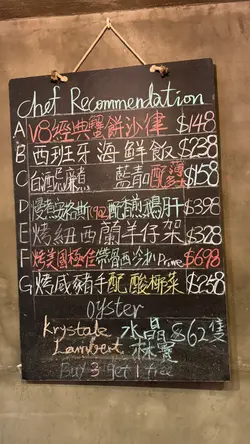 Chef Recommendation
A V8經典蟹餅沙律 $148
B 西班牙海鮮飯 $238
C 白酒忌廉煮 藍青口 $158
D 慢煮安格斯 配煎鵝肝 $398
E 烤紐西蘭羊仔架 $328
F 烤美國極佳 西冷 Prime $698
G 烤咸豬手配酸椰菜 $258
Oyster
Krystale 水晶 $62隻
Lambert 林寶
Buy 3 get 1 free